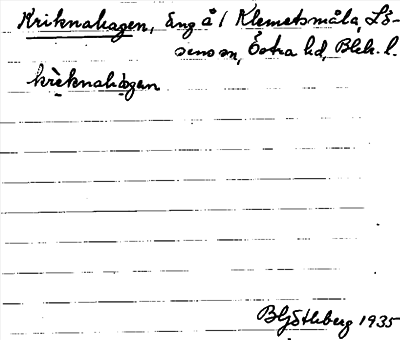 Kriknahagen, äng å 1 Klemetsmåla, Lö-
sens sn, Östra hd, Blek. l.
krìknahàgan
B Götlberg 1935